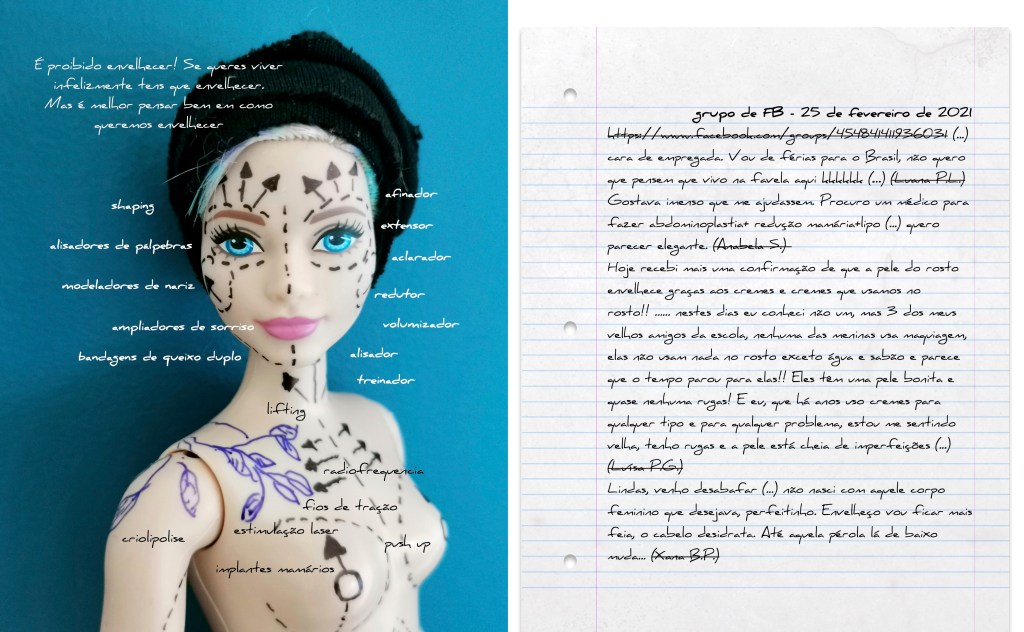 É proibido envelhecer! Se queres viver
infelizmente tens que envelhecer.
Mas é melhor pensar bem em como
queremos envelhecer
shaping
alisadores de palpebras
modeladores de nariz
ampliadores de sorriso
bandagens de queixo duplo
afinador
extensor
aclarador
redutor
volumizador
alisador
treinador
lifting
radiofrequencia
fios de tração
estimulação laser
criolipolise
push up
implantes mamários
grupo de FB - 25 de fevereiro de 2021
https://www.facebook.com/groups/454841411936031 (...)
cara de empregada. Vou de férias para o Brasil, não quero
que pensem que vivo na favela aqui kkkkkkk (...) (Luana P.L.)
Gostava imenso que me ajudassem. Procuro um médico para
fazer abdominoplastia+ redução mamária+lipo (...) quero
parecer elegante. (Anabela S.)
Hoje recebi mais uma confirmação de que a pele do rosto
envelhece graças aos cremes e cremes que usamos no
rosto!! ...... nestes dias eu conheci não um, mas 3 dos meus
velhos amigos da escola, nenhuma das meninas usa maquiagem,
elas não usam nada no rosto exceto água e sabão e parece
que o tempo parou para elas!! Eles têm uma pele bonita e
quase nenhuma rugas! E eu, que há anos uso cremes para
qualquer tipo e para qualquer problema, estou me sentindo
velha, tenho rugas e a pele está cheia de imperfeições (...)
(Luísa P.G.)
Lindas, venho desabafar (...) não nasci com aquele corpo
feminino que desejava, perfeitinho. Envelheço vou ficar mais
feia, o cabelo desidrata. Até aquela pérola lá de baixo
muda... (Xana B.P.)